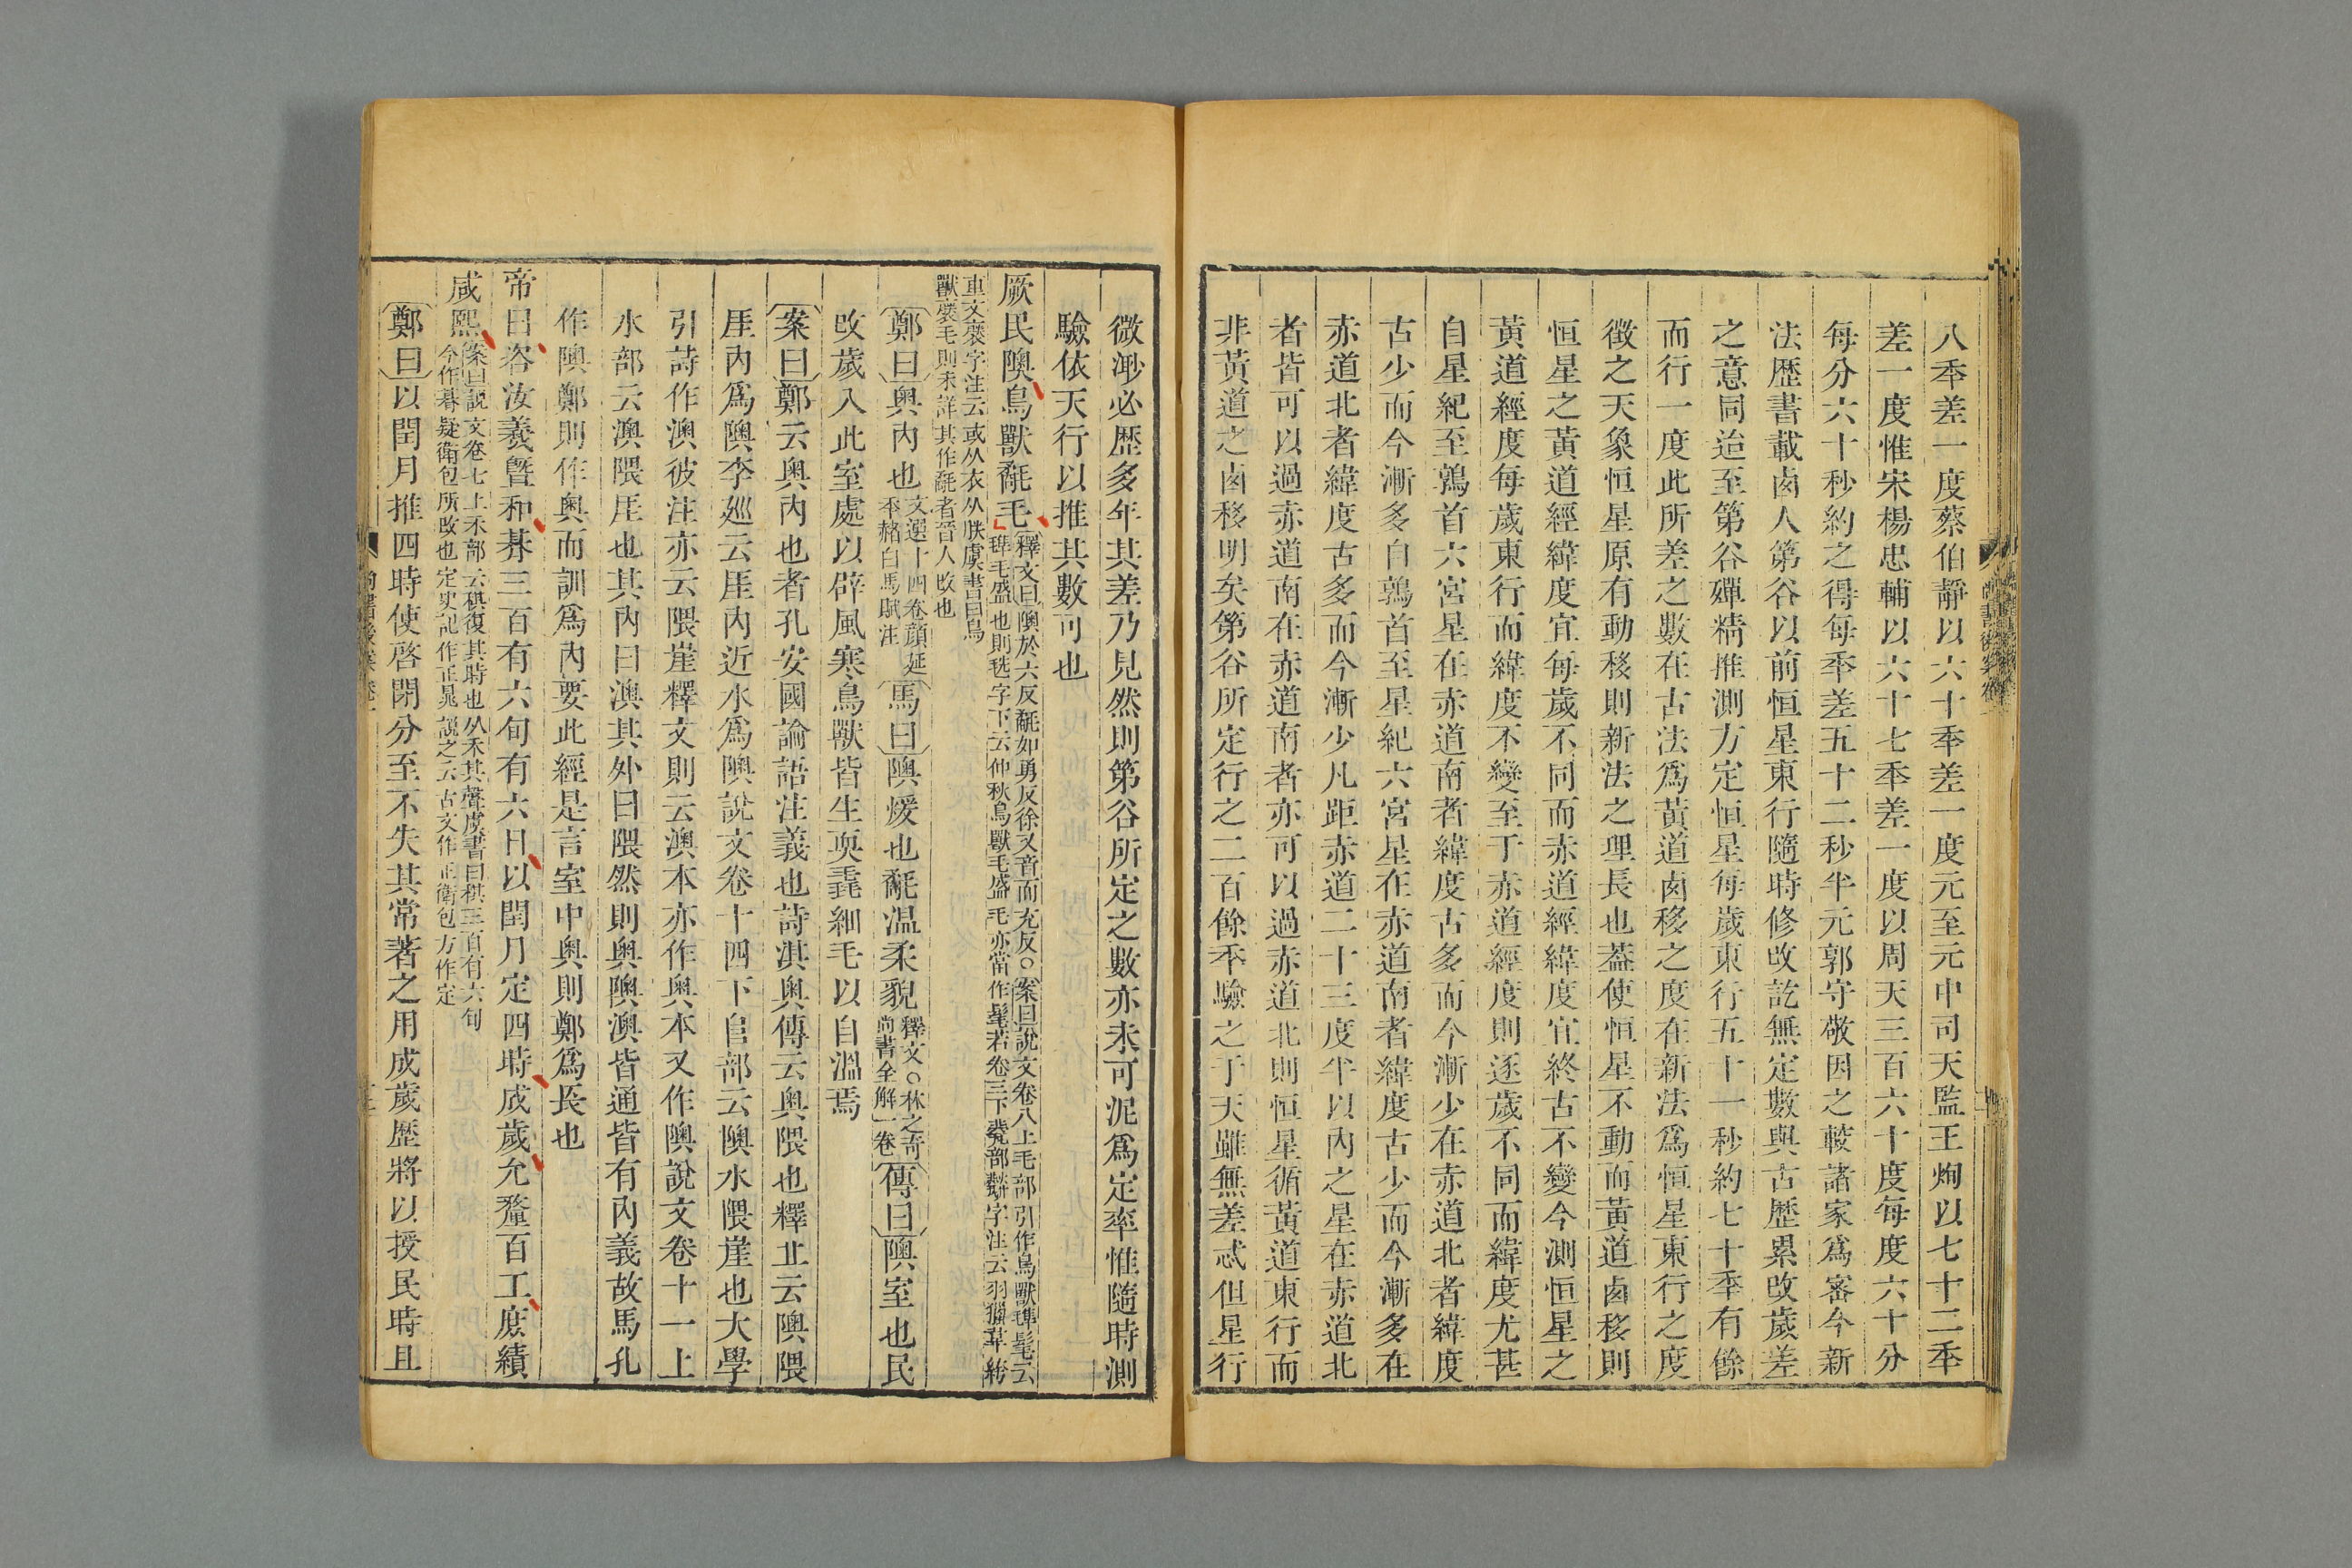 八秊差一度蔡伯靜以六十秊差一度元至元中司天監王恂以七十二秊
差一度惟宋楊忠輔以六十七秊差一度以周天三百六十度每度六十分
每分六十秒約之得每秊差五十二秒半元郭守敬因之較諸家爲審今新
法歴書載卤人第谷以前恒星東行隨時修攺訖無定數與古歴累攺歲差
之意同迨至第谷殫精推測方定恒星每歲東行五十一秒約七十秊有餘
而行一度此所差之數在古法爲黃道卤移之度在新法爲恒星東行之度
徴之天象恒星原有動移則新法之理長也葢使恒星不動而黃道卤移則
恒星之黃道經緯度宜每歲不同而赤道經緯度宜終古不變今測恒星之
黃道經度每歲東行而緯度不變至于赤道經度則逐歲不同而緯度尤甚
自星紀至鶉首六宮星在赤道南者緯度古多而今漸少在赤道北者緯度
古少而今漸多自鶉首至星紀六宮星在赤道南者緯度古少而今漸多在
赤道北者緯度古多而今漸少凡距赤道二十三度半以內之星在赤道北
者皆可以過赤道南在赤道南者亦可以過赤道北則恒星循黃道東行而
非黃道之卤移明矣第谷所定行之二百餘秊驗之于天雖無差忒但星行
微渺必歴多年其差乃見然則第谷所定之數亦未可泥爲定率惟隨時測
驗依天行以推其數可也
厥民隩鳥獸氄毛 釋文曰隩於六反氄如勇反徐又音而充反○案曰說文卷八上毛部引作鳥獸䋽髦云
䋽毛盛也則毨字下云仲秋鳥獸毛盛毛亦當作髦若卷三下㼱部字注云羽獵韋絝
重文襃字注云或从衣从朕虞書曰鳥
獸襃毛則未詳其作氄者晉人攺也
鄭曰奧內也 文選十四卷顏延
秊赭白馬賦注 馬曰隩煖也氄温柔貌 釋文○林之奇
尚書全解一卷 傳曰隩室也民
攺歲入此室處以辟風寒鳥獸皆生耎毳細毛以自溫焉
案曰鄭云奧內也者孔安國論語注義也詩淇奧傳云奧隈也釋丘云隩隈
厓內爲隩李廵云厓內近水爲隩說文卷十四下𨸏部云隩水隈崖也大學
引詩作澳彼注亦云隈崖釋文則云澳本亦作奧本又作隩說文卷十一上
水部云澳隈厓也其內曰澳其外曰隈然則奧隩澳皆通皆有內義故馬孔
作隩鄭則作奧而訓爲內要此經是言室中奧則鄭爲長也
帝曰咨汝羲曁和朞三百有六旬有六日以閏月定四時成歲允釐百工庶績
咸熙 案曰說文卷七上禾部云稘復其時也从禾其聲虞書曰稘三百有六旬
今作朞疑衛包所攺也定史記作正晁說之云古文作正衛包方作定
鄭曰以閏月推四時使啓閉分至不失其常著之用成歲歴將以授民時且